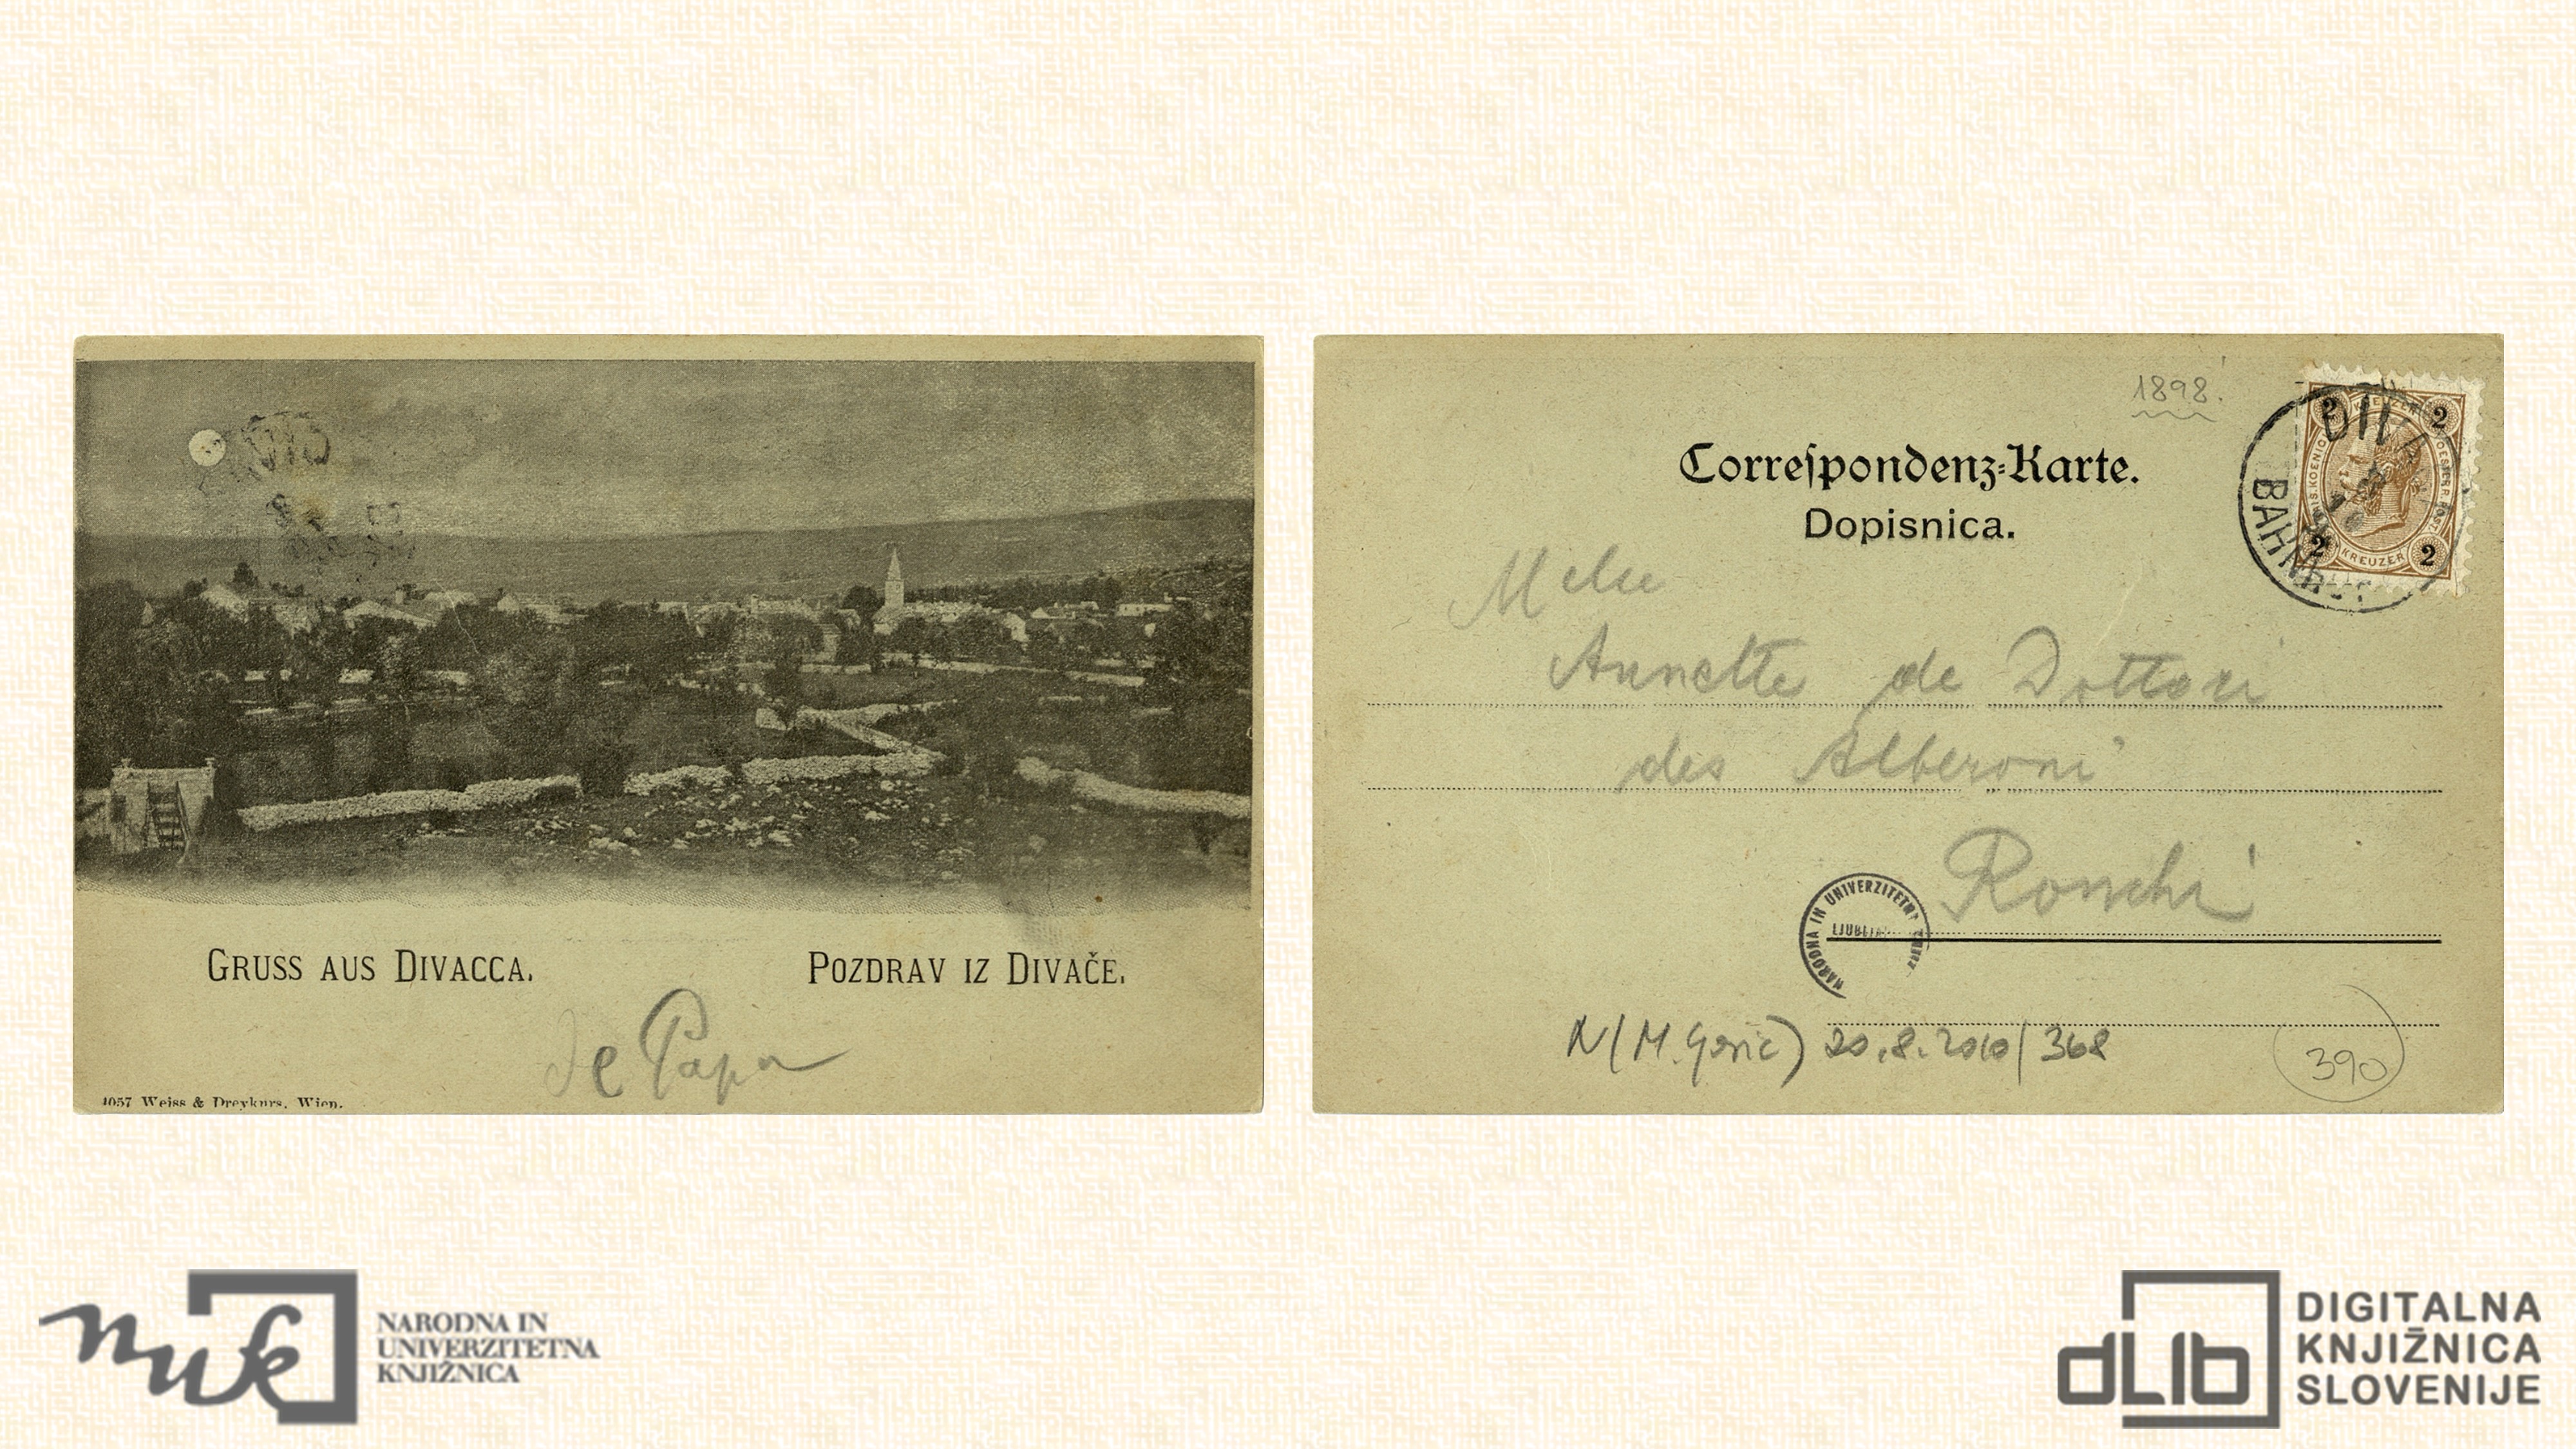 GRUSS AUS DIVACCA.
POZDRAV IZ DIVAČE.
Papa
1057 Weiss & Dreykurs, Wien.
1898.
Correſpondenz-Karte.
Dopisnica.
2 2
KREUZER
2 2
BAHNH
Annette de Dottori
des Alberoni
Ronchi
NARODNA IN UNIVERZITETN
LJUBLJA
N(M. Gorič) 20.8.2010/368
390
nuk
NARODNA IN
UNIVERZITETNA
KNJIŽNICA
dLib
DIGITALNA
KNJIŽNICA
SLOVENIJE